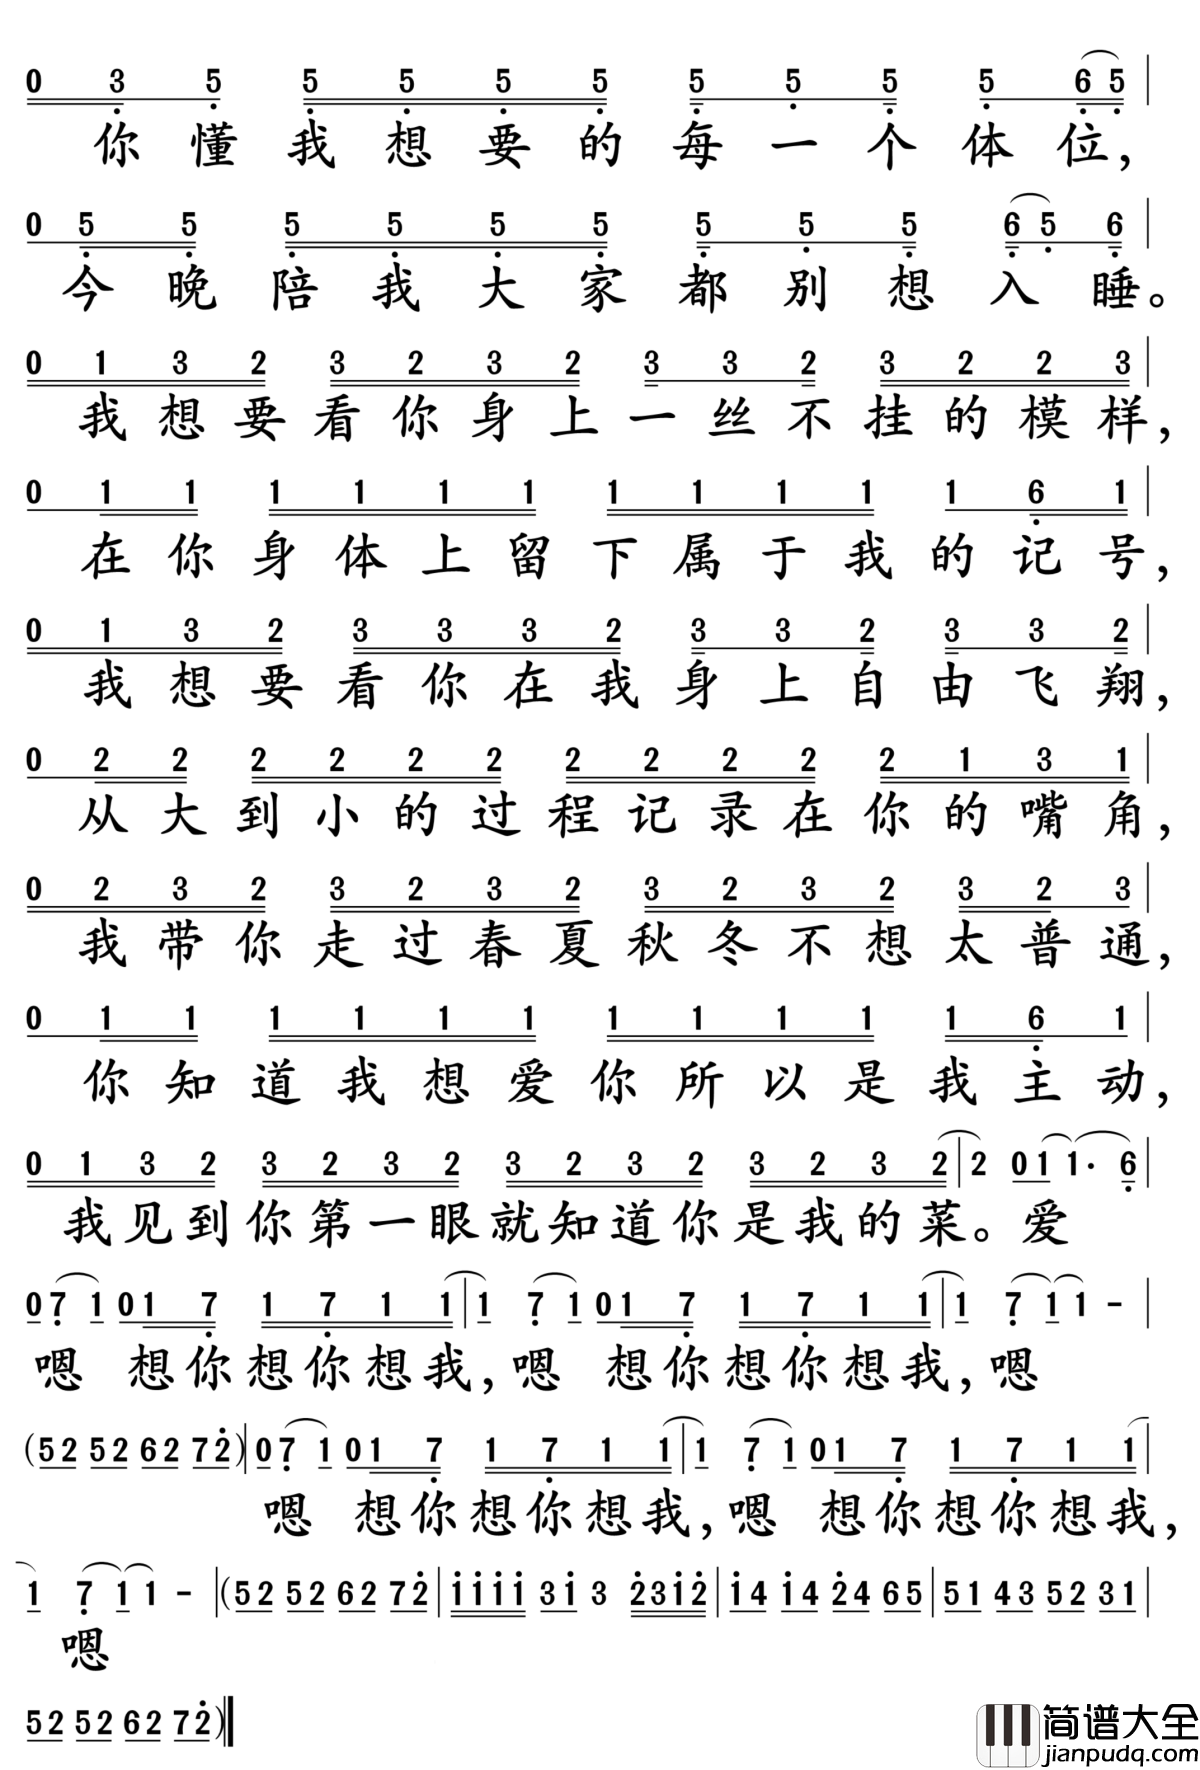 0 3 5 5 5 5 5 5 5 5 5 6 5
你懂我想要的每一个体位，
0 5 5 5 5 5 5 5 5 5 6 5 6
今晚陪我大家都别想入睡。
0 1 3 2 3 2 3 2 3 3 2 3 2 2 3
我想要看你身上一丝不挂的模样，
0 1 1 1 1 1 1 1 1 1 1 1 6 1
在你身体上留下属于我的记号，
0 1 3 2 3 3 3 2 3 3 2 3 3 2
我想要看你在我身上自由飞翔，
0 2 2 2 2 2 2 2 2 2 2 2 1 3 1
从大到小的过程记录在你的嘴角，
0 2 3 2 3 2 3 2 3 2 3 2 3 2 3
我带你走过春夏秋冬不想太普通，
0 1 1 1 1 1 1 1 1 1 1 1 6 1
你知道我想爱你所以是我主动，
0 1 3 2 3 2 3 2 3 2 3 2 3 2 3 2 | 2 0 1 1· 6
我见到你第一眼就知道你是我的菜。爱
0 7 1 0 1 7 1 7 1 1 | 1 7 1 0 1 7 1 7 1 1 | 1 7 1 1 -
嗯 想你想你想我，嗯 想你想你想我，嗯
(5 2 5 2 6 2 7 2) | 0 7 1 0 1 7 1 7 1 1 | 1 7 1 0 1 7 1 7 1 1
嗯 想你想你想我，嗯 想你想你想我，
1 7 1 1 - | (5 2 5 2 6 2 7 2 | 1 1 1 1 3 1 3 2 3 1 2 | 1 4 1 4 2 4 6 5 | 5 1 4 3 5 2 3 1
嗯
5 2 5 2 6 2 7 2)
简谱大全
jianpudq.com